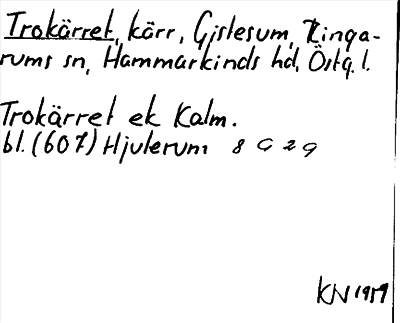 Trokärret, kärr, Gislesum, Ringa-
rums sn, Hammarkinds hd, Östg. l.
Trokärret ek Kalm.
bl. (607) Hjulerum 8 G 2 g
KN 1959